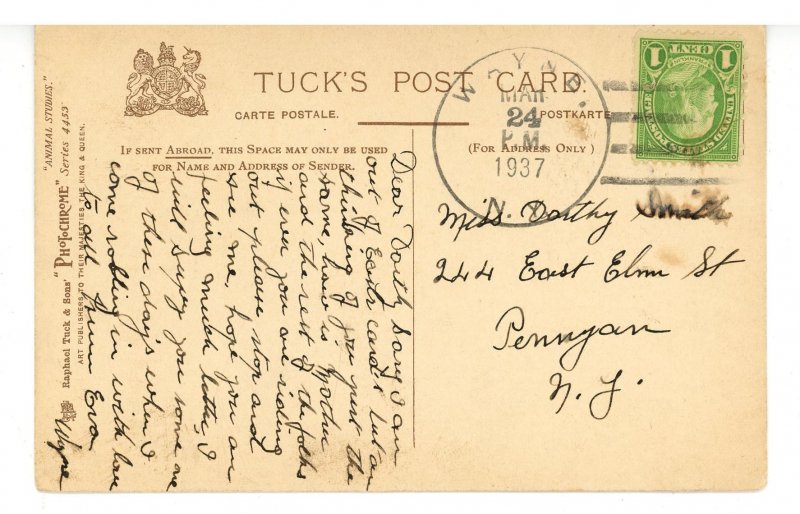 TUCK'S POST CARD.
CARTE POSTALE.
POSTKARTE
IF SENT ABROAD, THIS SPACE MAY ONLY BE USED
FOR NAME AND ADDRESS OF SENDER.
(FOR ADDRESS ONLY)
"ANIMAL STUDIES."
"PHOTOCHROME" Series 4453
Raphael Tuck & Sons'
ART PUBLISHERS TO THEIR MAJESTIES THE KING & QUEEN.
WAYNE.
MAR
24
P M
1937
N.Y.
1 CENT 1
Miss. Dorthy Smith
244 East Elm St
Pennyan
N. Y.
Dear Doroth Sory I am
out of Easter cards but am
thinking of you just the
same, how is Mother
and the rest of the folks
if ever you are riding
out please stop and
see me, hope you are
feeling much better, I
will suppry you some one
of these days when I
come rolling in with love
to all from Eva
Wayne